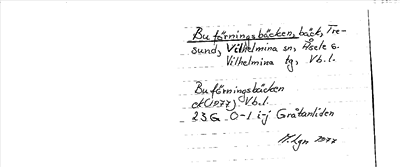 Buförningsbäcken, bäck, Tre-
sund, Vilhelmina sn, Åsele s.
Vilhelmina tg, Vb. l.
Buförningsbäcken
ek (1977) Vb. l.
23G 0-1 i-j Gråtanliden
M. Lgn 1977